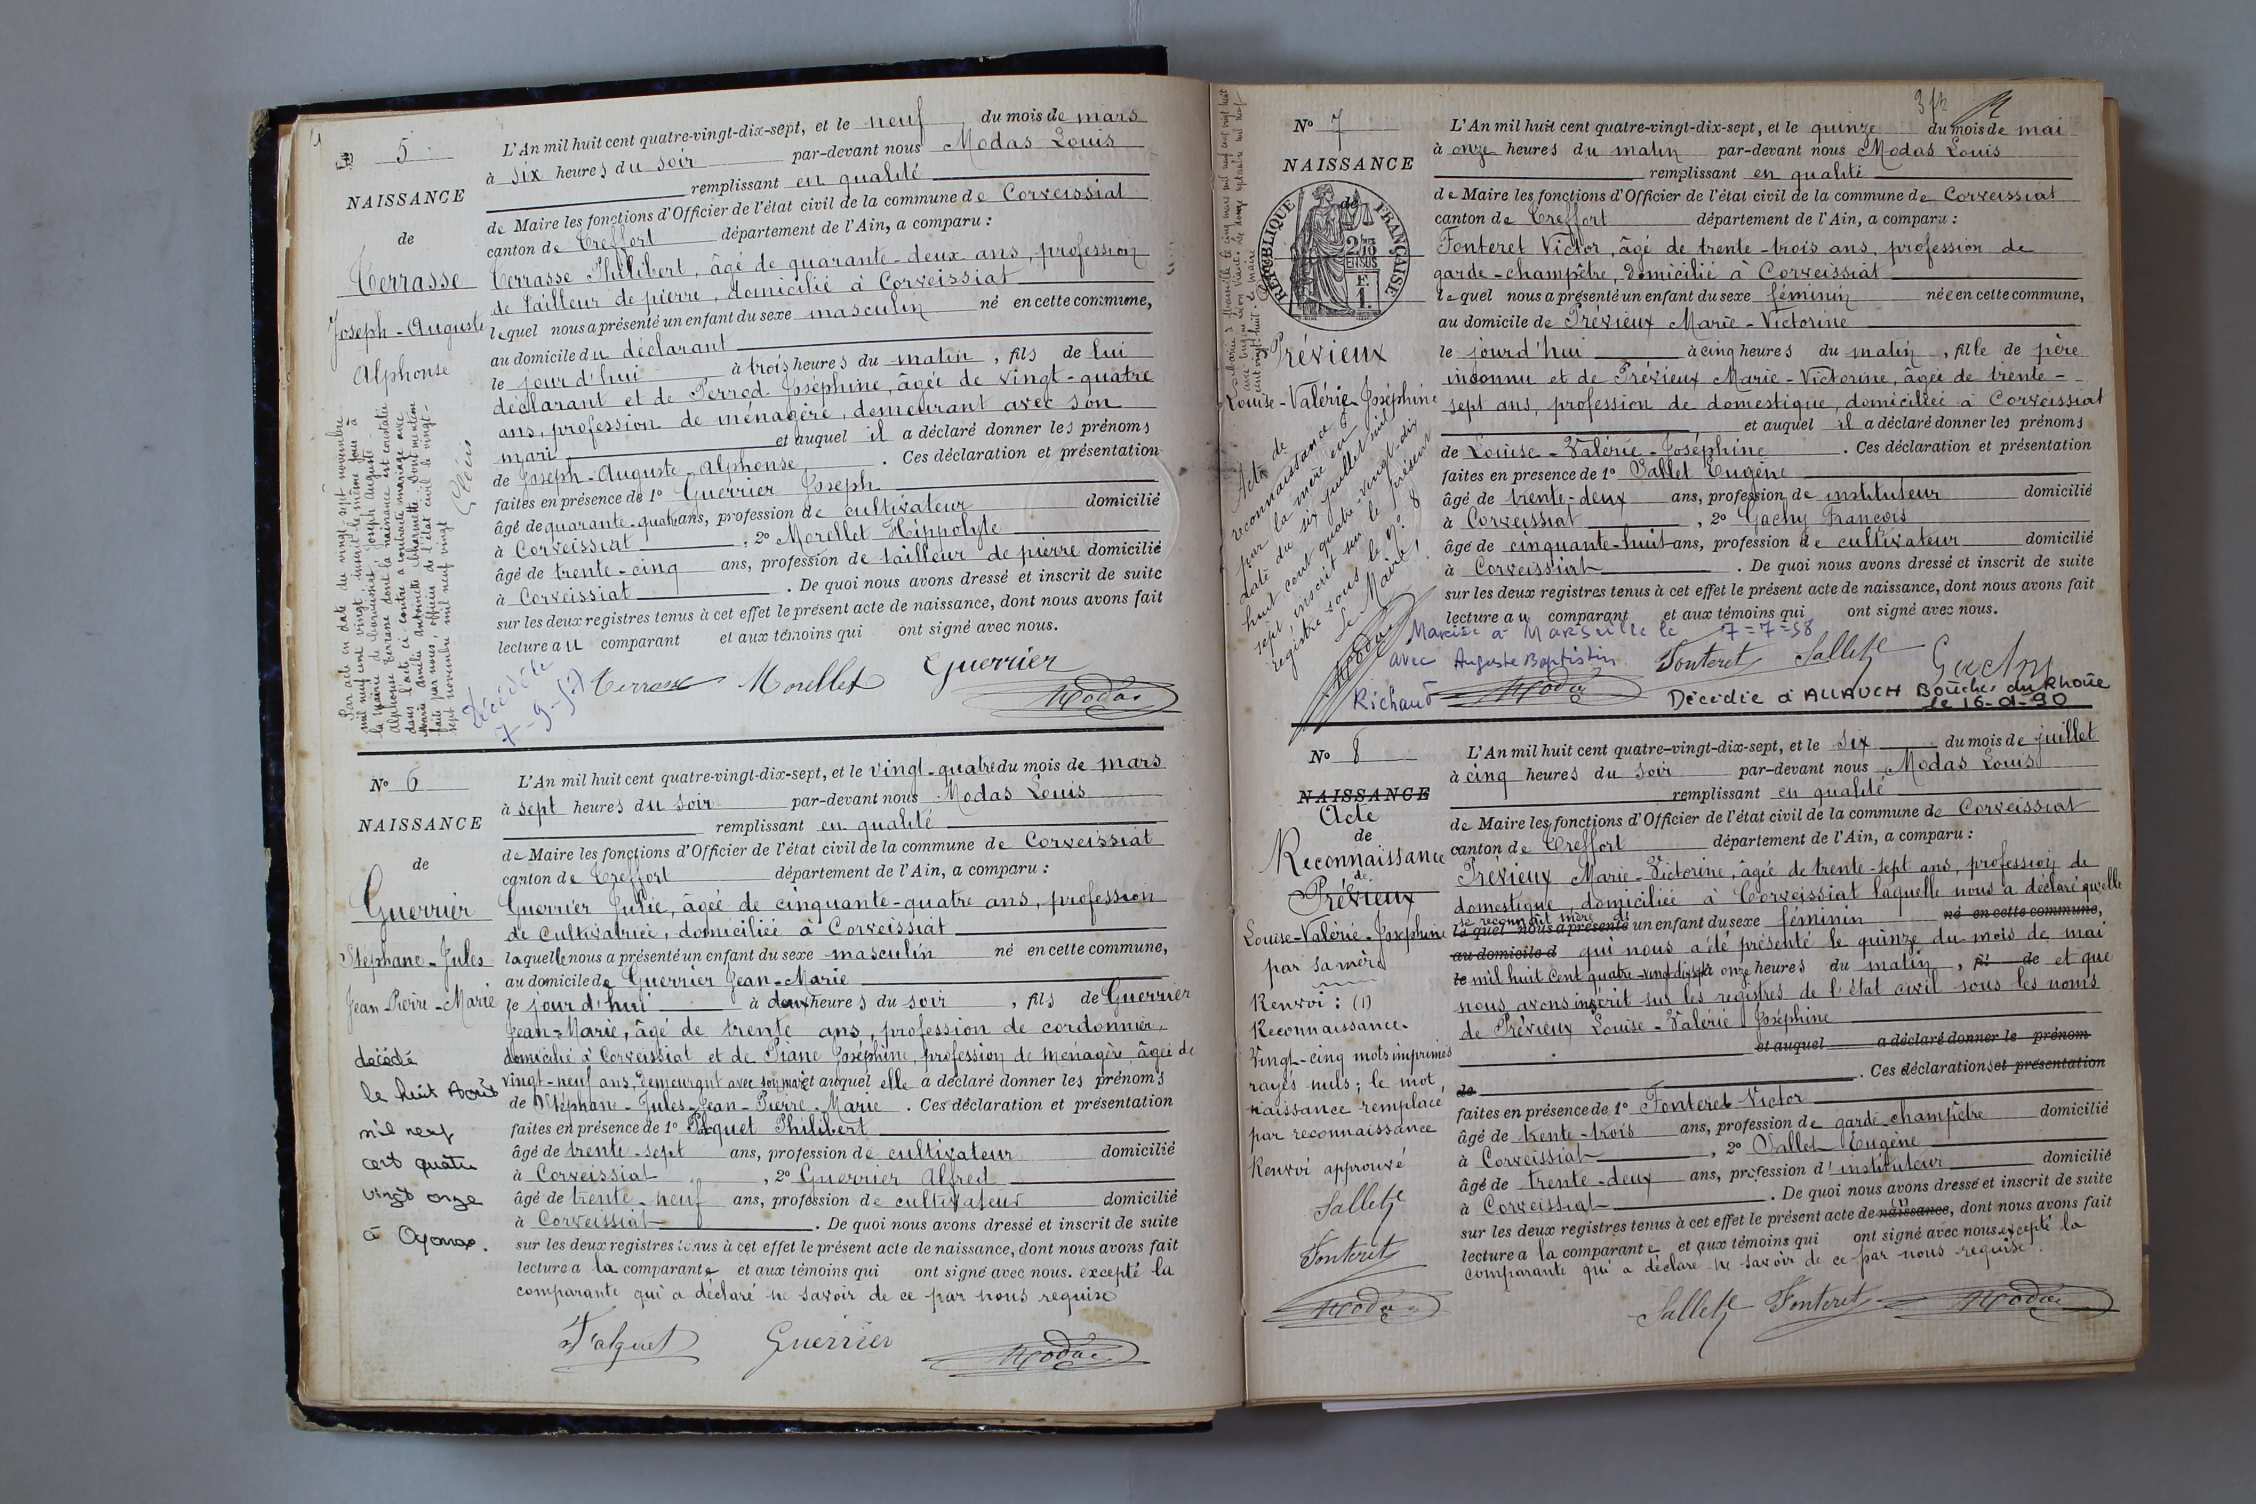 N° 5
NAISSANCE
de
Terrasse
Joseph-Auguste
Alphonse
Par acte en date du vingt sept novembre
mil neuf cent vingt, inscrit le même jour à
la Mairie de
Alphonse Terrasse dont la naissance est constatée
dans l'acte ci contre a contracté mariage avec
Marie Amélie Antonnette Dont mention
faite par nous, officier de l'état civil le vingt-
sept novembre mil neuf vingt
L'An mil huit cent quatre-vingt-dix-sept, et le neuf du mois de mars
à six heures du soir par-devant nous Modas Louis
remplissant en qualité
de Maire les fonctions d'Officier de l'état civil de la commune de Corveissiat
canton de Treffort département de l'Ain, a comparu :
Terrasse Philibert, âgé de quarante-deux ans, profession
de tailleur de pierre, domicilié à Corveissiat
lequel nous a présenté un enfant du sexe masculin né en cette commune,
au domicile du déclarant
le jour d'hui à trois heures du matin, fils de lui
déclarant et de Perrod Joséphine, âgée de vingt-quatre
ans, profession de ménagère, demeurant avec son
mari et auquel il a déclaré donner les prénoms
de Joseph-Auguste-Alphonse. Ces déclaration et présentation
faites en présence de 1° Guerrier Joseph
âgé de quarante-quatre ans, profession de cultivateur domicilié
à Corveissiat, 2° Morellet Hippolyte
âgé de trente-cinq ans, profession de tailleur de pierre domicilié
à Corveissiat. De quoi nous avons dressé et inscrit de suite
sur les deux registres tenus à cet effet le présent acte de naissance, dont nous avons fait
lecture au comparant et aux témoins qui ont signé avec nous.
Terrasse Morellet Guerrier
Modas
N° 6
NAISSANCE
de
Guerrier
Stéphane-Jules
Jean-Pierre-Marie
décédé
le huit Août
mil neuf
cent quatre
vingt onze
à Oyonnax.
L'An mil huit cent quatre-vingt-dix-sept, et le vingt-quatre du mois de mars
à sept heures du soir par-devant nous Modas Louis
remplissant en qualité
de Maire les fonctions d'Officier de l'état civil de la commune de Corveissiat
canton de Treffort département de l'Ain, a comparu :
Guerrier Julie, âgée de cinquante-quatre ans, profession
de Cultivatrice, domiciliée à Corveissiat
laquelle nous a présenté un enfant du sexe masculin né en cette commune,
au domicile de Guerrier Jean-Marie
le jour d'hui à deux heures du soir, fils de Guerrier
Jean-Marie, âgé de trente ans, profession de cordonnier,
domicilié à Corveissiat et de Piane Joséphine, profession de ménagère, âgée de
vingt-neuf ans, demeurant avec son mari et auquel elle a déclaré donner les prénoms
de Stéphane-Jules-Jean-Pierre-Marie. Ces déclaration et présentation
faites en présence de 1° Paquet Philibert
âgé de trente-sept ans, profession de cultivateur domicilié
à Corveissiat, 2° Guerrier Alfred
âgé de trente-neuf ans, profession de cultivateur domicilié
à Corveissiat. De quoi nous avons dressé et inscrit de suite
sur les deux registres tenus à cet effet le présent acte de naissance, dont nous avons fait
lecture a la comparante et aux témoins qui ont signé avec nous. excepté la
comparante qui a déclaré ne savoir de ce par nous requise
Paquet Guerrier Modas
N° 7
NAISSANCE
de
RÉPUBLIQUE FRANÇAISE
Prévieux
Louise-Valérie-Joséphine
Acte de
reconnaissance
par la mère en
date du six juillet mil
huit cent quatre-vingt-dix
sept inscrit sur le présent
registre sous le N° 8
Le Maire
Modas
L'An mil huit cent quatre-vingt-dix-sept, et le quinze du mois de mai
à onze heures du matin par-devant nous Modas Louis
remplissant en qualité
de Maire les fonctions d'Officier de l'état civil de la commune de Corveissiat
canton de Treffort département de l'Ain, a comparu :
Fonteret Victor, âgé de trente-trois ans, profession de
garde-champêtre, domicilié à Corveissiat
lequel nous a présenté un enfant du sexe féminin née en cette commune,
au domicile de Prévieux Marie-Victorine
le jourd'hui à cinq heures du matin, fille de père
inconnu et de Prévieux Marie-Victorine, âgée de trente-
sept ans, profession de domestique, domiciliée à Corveissiat
et auquel il a déclaré donner les prénoms
de Louise-Valérie-Joséphine. Ces déclaration et présentation
faites en presence de 1° Sallet Eugène
âgé de trente-deux ans, profession de instituteur domicilié
à Corveissiat, 2° Gachy François
âgé de cinquante-huit ans, profession de cultivateur domicilié
à Corveissiat. De quoi nous avons dressé et inscrit de suite
sur les deux registres tenus à cet effet le présent acte de naissance, dont nous avons fait
lecture au comparant et aux témoins qui ont signé avec nous.
Mariée à Marseille le 7=7=58
avec Auguste Baptistin
Richaud
Fonteret Sallet Gachy
Modas
Décédée à ALLAUCH Bouches du Rhône
N° 8
NAISSANCE
Acte
de
Reconnaissance
de
Prévieux
Louise-Valérie-Joséphine
par sa mère
Renvoi : (1)
Reconnaissance.
Vingt-cinq mots imprimés
rayés nuls ; le mot
naissance remplacé
par reconnaissance
Renvoi approuvé
Sallet
Fonteret
Modas
L'An mil huit cent quatre-vingt-dix-sept, et le six du mois de juillet
à cinq heures du soir par-devant nous Modas Louis
remplissant en qualité
de Maire les fonctions d'Officier de l'état civil de la commune de Corveissiat
canton de Treffort département de l'Ain, a comparu :
Prévieux Marie-Victorine, âgée de trente-sept ans, profession de
domestique, domiciliée à Corveissiat laquelle nous a déclaré qu'elle
se reconnait mère de
lequel nous a présenté un enfant du sexe féminin né en cette commune,
au domicile d qui nous a été présenté le quinze du mois de mai
le mil huit cent quatre-vingt-dix-sept à onze heures du matin, fil de et que
nous avons inscrit sur les registres de l'état civil sous les noms
de Prévieux Louise-Valérie-Joséphine
et auquel a déclaré donner le prénom
de . Ces déclarations et présentation
faites en présence de 1° Fonteret Victor
âgé de trente-trois ans, profession de garde-champêtre domicilié
à Corveissiat, 2° Sallet Eugène
âgé de trente-deux ans, profession d'instituteur domicilié
à Corveissiat. De quoi nous avons dressé et inscrit de suite
sur les deux registres tenus à cet effet le présent acte de naissance, (1) dont nous avons fait
lecture a la comparante et aux témoins qui ont signé avec nous excepté la
comparante qui a déclaré ne savoir de ce par nous requise.
Sallet Fonteret Modas